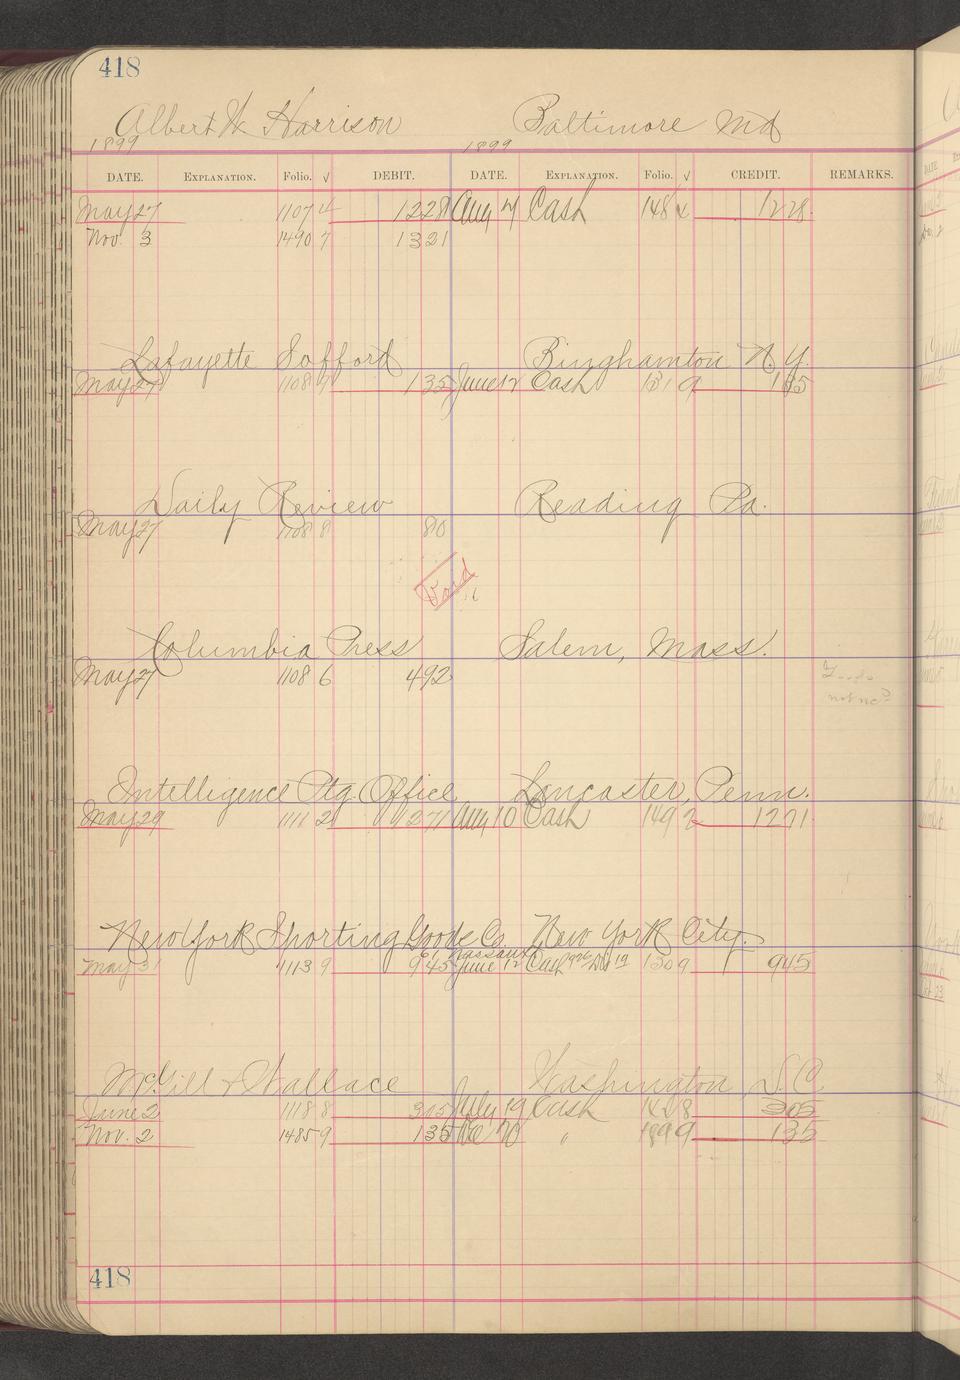 418
Albert W. Harrison Baltimore Md
1899 1899
DATE. EXPLANATION. Folio. √ DEBIT. DATE. EXPLANATION. Folio. √ CREDIT. REMARKS.
May 27 1107 4 1228 Aug 4 Cash 148 4 1228
Nov. 3 1490 7 1321
Lafayette Sofford Binghamton N.Y.
May 27 1108 7 135 June 12 Cash 131 9 135
Daily Review Reading Pa.
May 27 1108 8 80
Columbia Press Salem, Mass.
May 27 1108 6 492
Goods
not recd
Intelligence Ptg. Office Lancaster, Penn.
May 29 1111 2 1271 Aug 10 Cash 149 2 1271
New York Sporting Goods Co. New York City.
Nassau
May 31 1113 9 945 June 12 Cash 926 Dis 19 130 9 945
McGill & Wallace Washington D.C.
June 2 1118 8 305 July 19 Cash 142 8 305
Nov. 2 1485 9 135 Dec 20 " 199 9 135
418